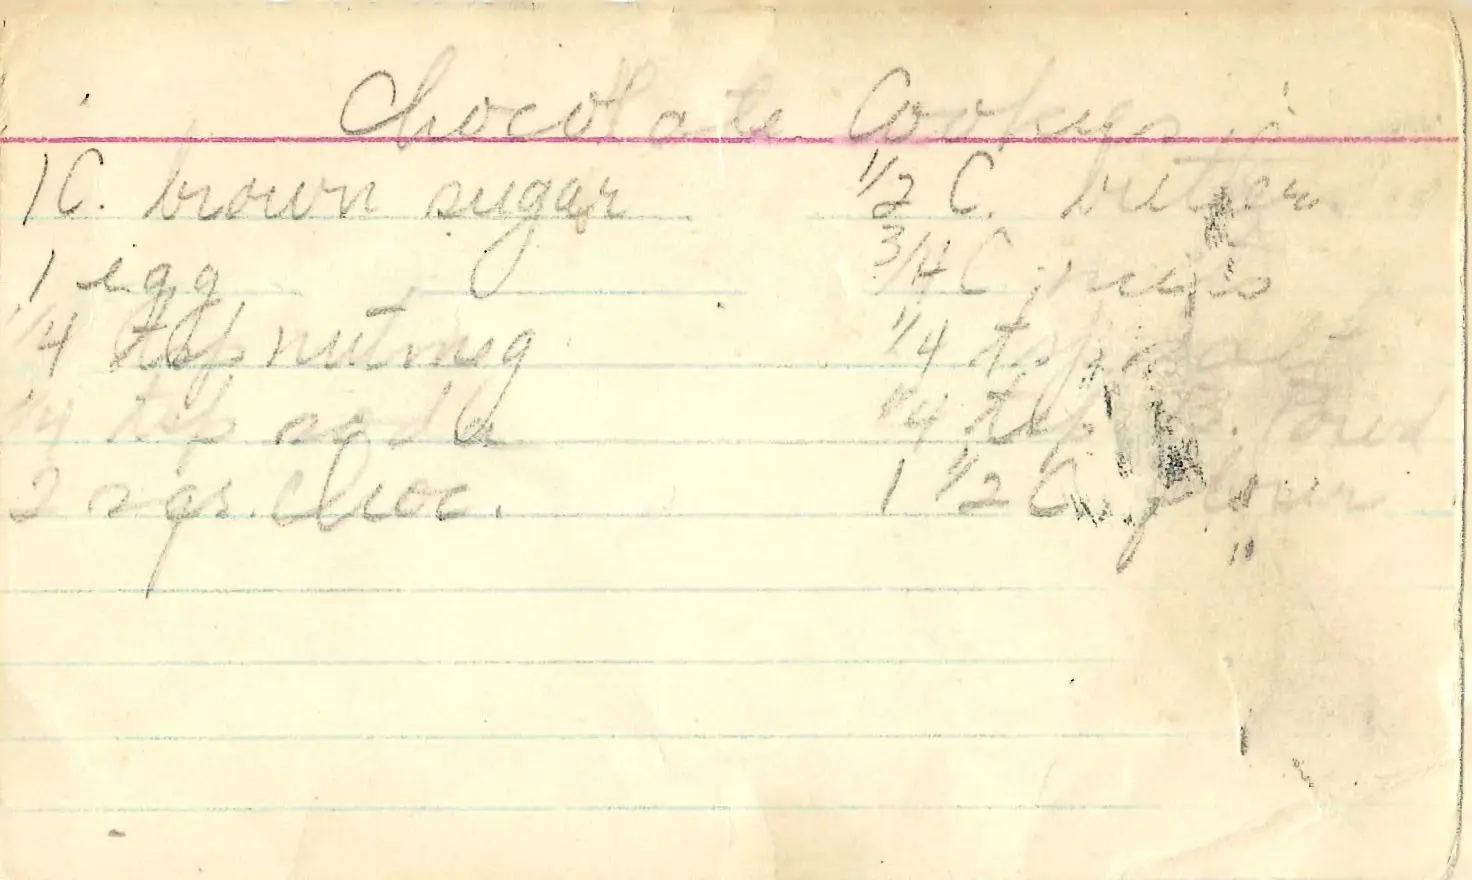 Chocolate Cookys
1 C. brown sugar 1/2 C. butter
1 egg 3/4 C nuts
1/4 tsp nutmeg 1/4 tsp salt
1/4 tsp soda 1/4 tsp B. Powd
2 sqs. choc. 1 1/2 C. flour